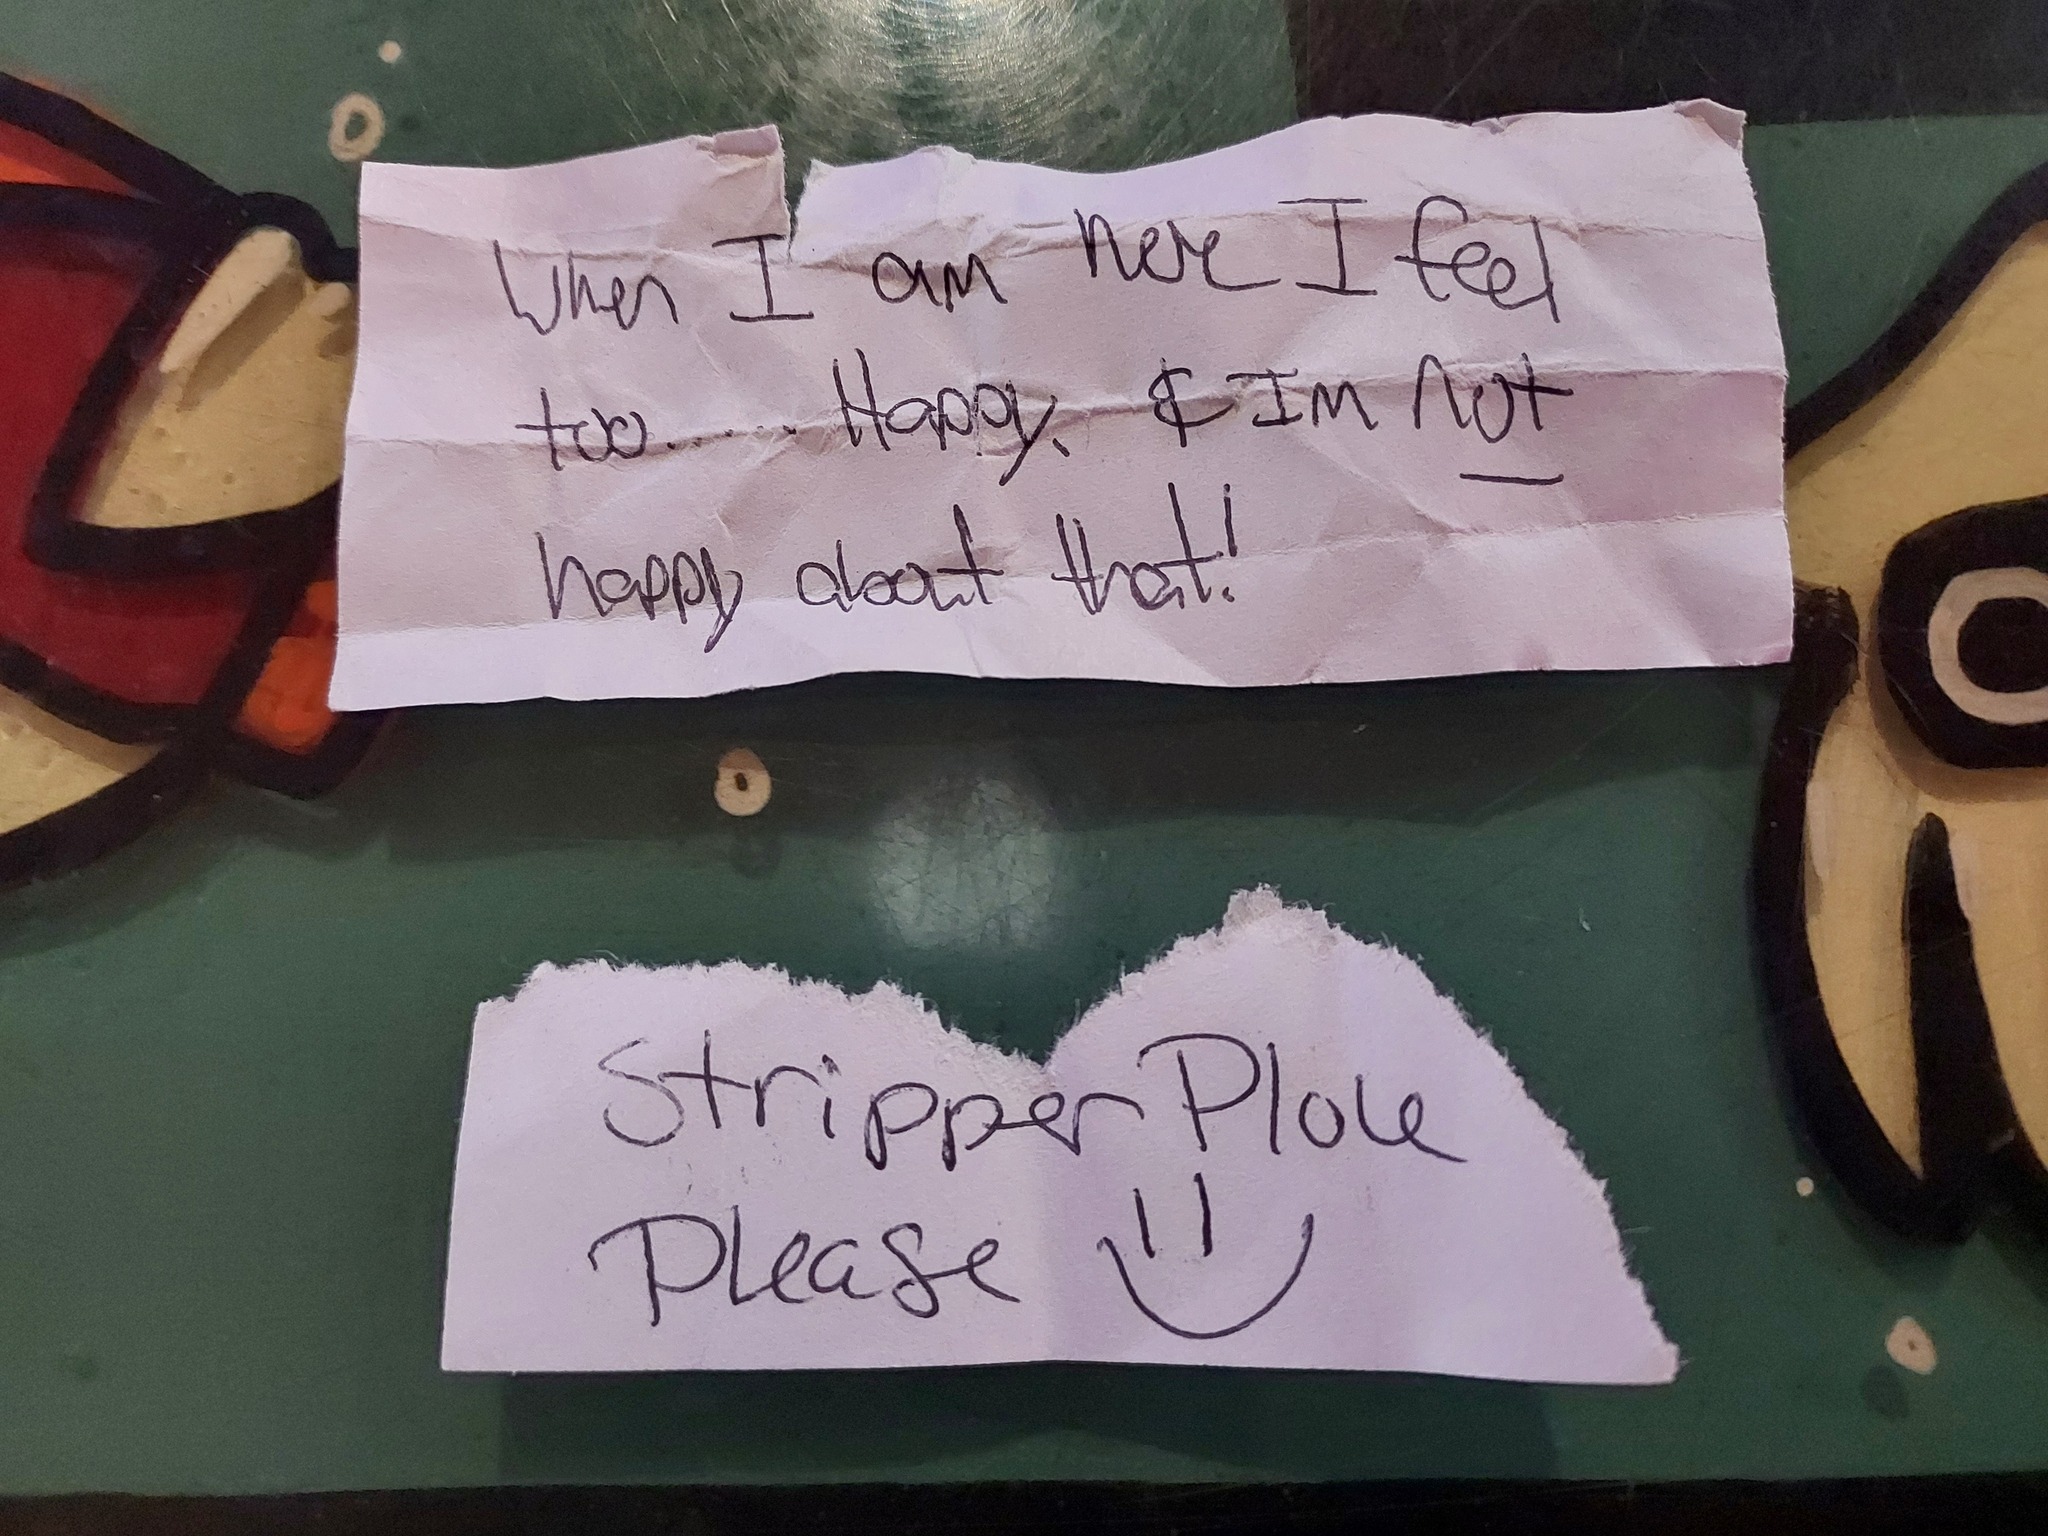 When I am here I feel
too....... Happy. & Im not
happy about that!
Stripper Plole
Please